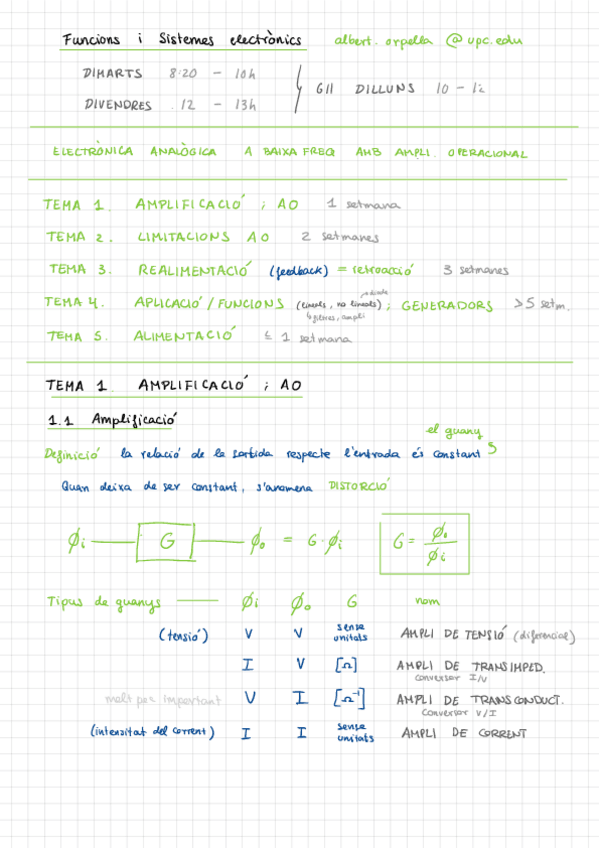 Funcions i Sistemes electrònics albert.orpella @upc.edu
DIMARTS 8:20 - 10h
G11 DILLUNS 10 - 12
DIVENDRES 12 - 13h
ELECTRÒNICA ANALÒGICA A BAIXA FREQ AMB AMPLI. OPERACIONAL
TEMA 1. AMPLIFICACIÓ ; AO 1 setmana
TEMA 2. LIMITACIONS AO 2 setmanes
TEMA 3. REALIMENTACIÓ (feedback) = retroacció 3 setmanes
díode
TEMA 4. APLICACIÓ / FUNCIONS (lineals, no lineals) ; GENERADORS >5 setm.
↳ filtres, ampli
TEMA 5. ALIMENTACIÓ ≤ 1 setmana
TEMA 1. AMPLIFICACIÓ ; AO
1.1 Amplificació
el guany
Definició la relació de la sortida respecte l'entrada és constant
Quan deixa de ser constant, s'anomena DISTORCIÓ
ϕi — G — ϕo = G·ϕi G = ϕo/ϕi
Tipus de guanys — ϕi ϕo G nom
(tensió) V V sense unitats AMPLI DE TENSIÓ (diferencial)
I V [Ω] AMPLI DE TRANSIMPED.
conversor I/V
molt poc important V I [Ω⁻¹] AMPLI DE TRANSCONDUCT.
conversor V/I
(intensitat del corrent) I I sense unitats AMPLI DE CORRENT